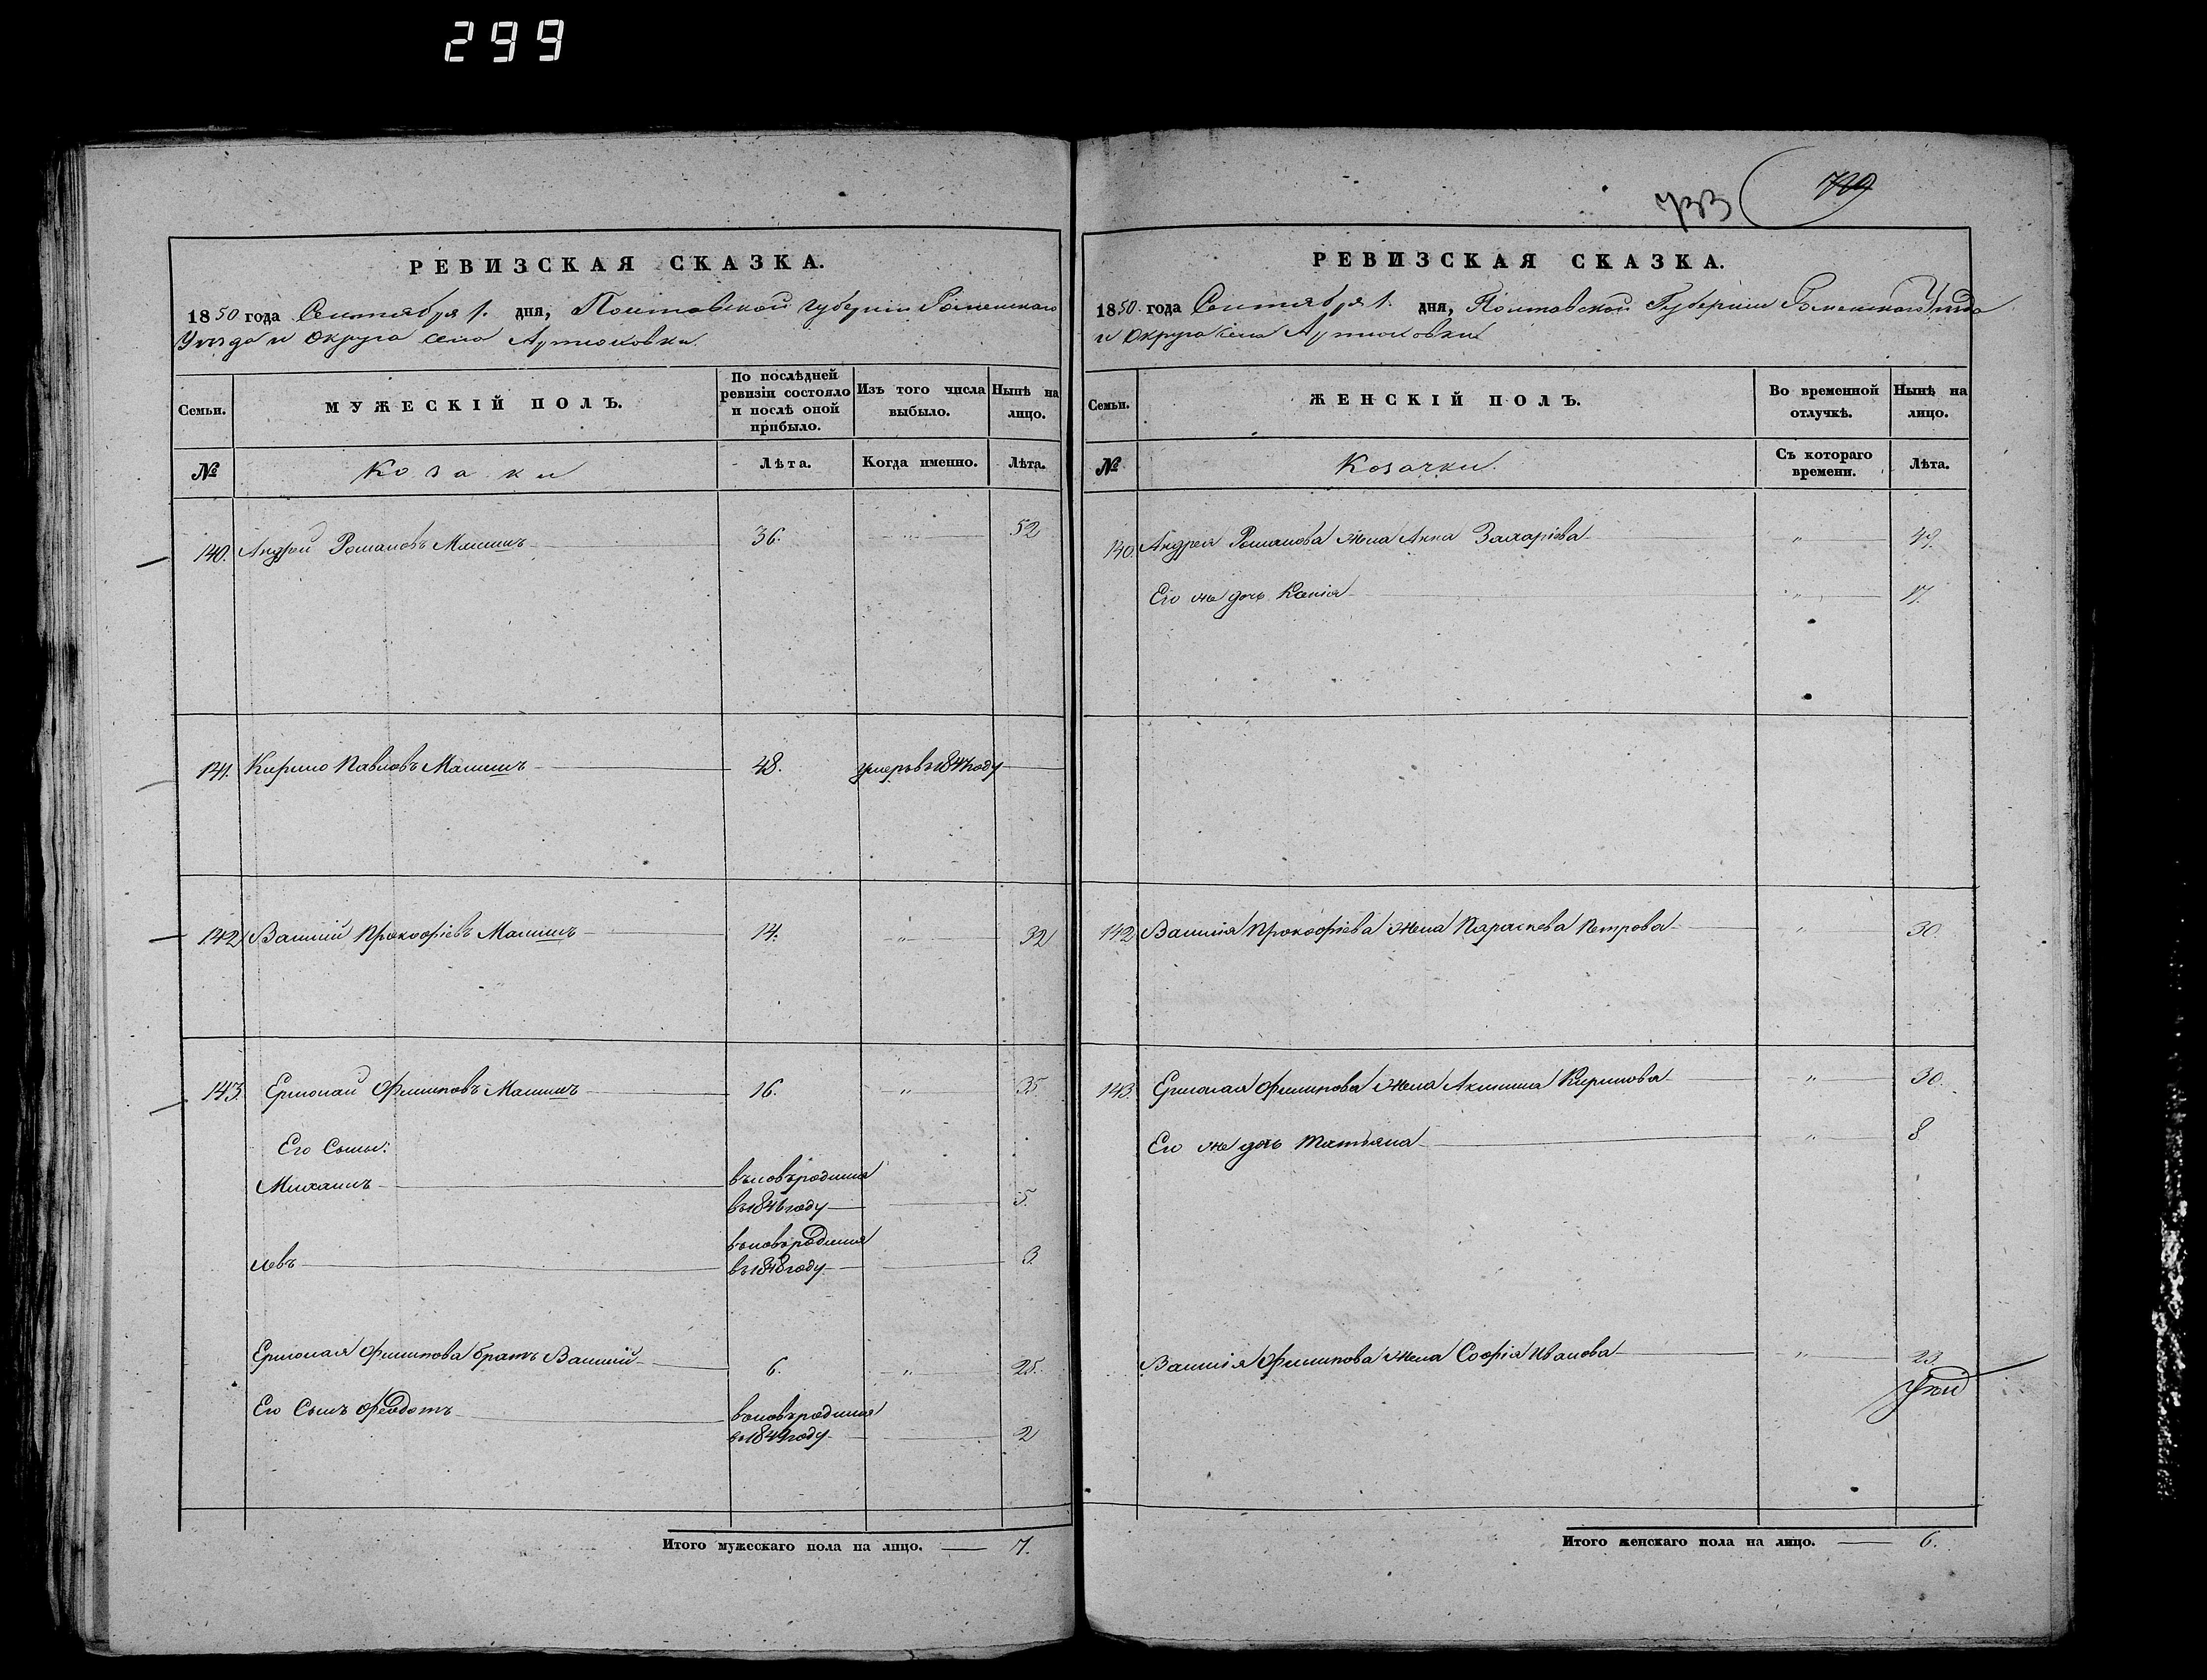 299
733 729
РЕВИЗСКАЯ СКАЗКА.
1850 года Сентября 1. дня, Полтавской Губерніи Роменскаго
Уѣзда и Округа села Артюховки.
Семьи.
МУЖЕСКІЙ ПОЛЪ.
По послѣдней ревизіи состояло и послѣ оной прибыло.
Изъ того числа выбыло.
Нынѣ на лицо.
№
Козаки
Лѣта.
Когда именно.
Лѣта.
140. Андрей Романовъ Малишъ 36. " 52
141. Кирило Павловъ Малишъ 48. умеръ въ 1844 году
142 Василий Прокофіевъ Малишъ 14. " 32
143. Ермолай Филиповъ Малишъ 16. " 35.
Его Сыны:
Михаилъ вновьродился
въ 1846 году 5.
Левъ вновьродился
въ 1848 году 3
Ермолая Филипова братъ Василий 6. " 25.
Его Сынъ Феодотъ вновьродился
въ 1849 году 2
Итого мужескаго пола на лицо. 7.
РЕВИЗСКАЯ СКАЗКА.
1850 года Сентября 1. дня, Полтавской Губерніи Роменскаго Уѣзда
и Округа села Артюховки
Семьи.
ЖЕНСКІЙ ПОЛЪ.
Во временной отлучкѣ.
Нынѣ на лицо.
№
Козачки.
Съ котораго времени.
Лѣта.
140. Андрея Романова жена Анна Захаріева " 49.
Его же дочь Ксенія " 17.
142 Василія Прокофіева жена Параскева Петрова " 30.
143. Ермолая Филипова жена Акилина Кирилова " 30.
Его же дочь Татьяна " 8
Василія Филипова жена Софія Иванова " 23.
Итого женскаго пола на лицо. 6.